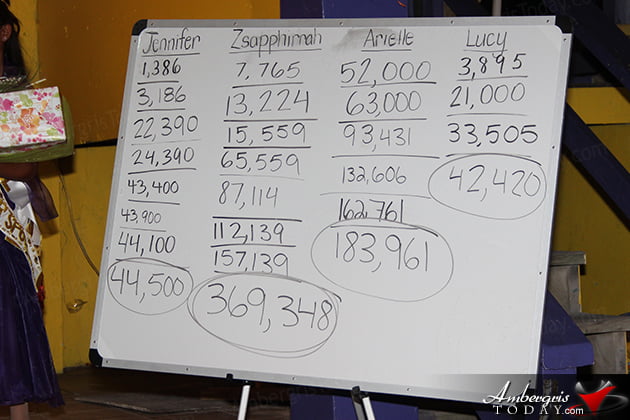 Jennifer Zsapphirrah Arielle Lucy
1,386 7,765 52,000 3,895
3,186 13,224 63,000 21,000
22,390 15,559 93,431 33,505
24,390 65,559 132,606 42,420
43,400 87,114 162,761
43,900 112,139 183,961
44,100 157,139
44,500 369,348
Ambergris
TODAY.com